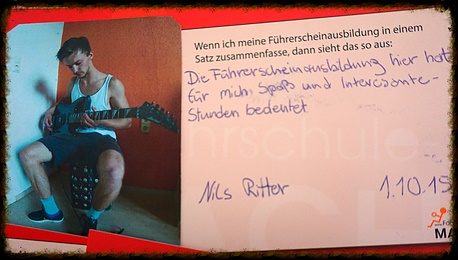 Wenn ich meine Führerscheinausbildung in einem
Satz zusammenfasse, dann sieht das so aus:
Die Führerscheinausbildung hier hat
für mich Spaß und Interessante-
Stunden bedeutet
Nils Ritter
1.10.15
MA